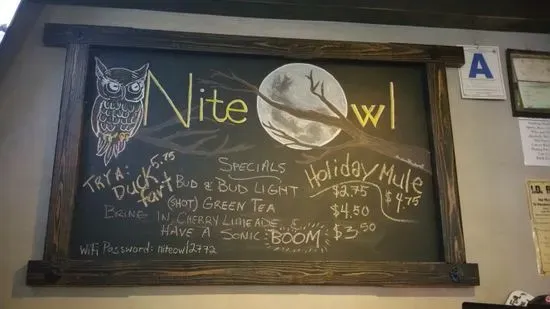 Nite Owl
A
TRY A: 5.75
DUCK
fart
SPECIALS
BUD & BUD LIGHT $2.75
(SHOT) GREEN TEA $4.50
BRING IN CHERRY LIMEADE &
HAVE A SONIC BOOM $3.50
Holiday Mule
$4.75
Wifi Password: niteowl2772